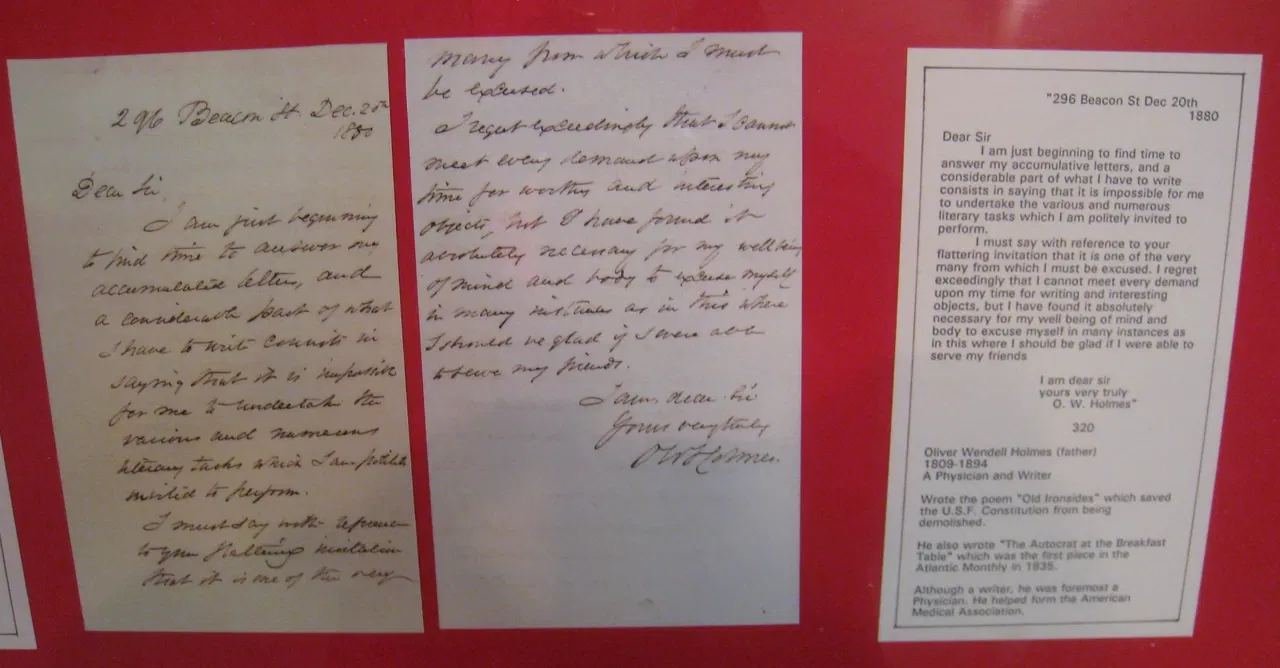 296 Beacon St Dec. 20th
1880
Dear Sir,
I am just beginning
to find time to answer my
accumulated letters, and
a considerable part of what
I have to write consists in
saying that it is impossible
for me to undertake the
various and numerous
literary tasks which I am politely
invited to perform.
I must say with reference
to your flattering invitation
that it is one of the very
many from which I must
be excused.
I regret exceedingly that I cannot
meet every demand upon my
time for worthy and interesting
objects, but I have found it
absolutely necessary for my well being
of mind and body to excuse myself
in many instances as in this where
I should be glad if I were able
to serve my friends.
I am, dear Sir
Yours very truly
O W Holmes.
"296 Beacon St Dec 20th
1880
Dear Sir
I am just beginning to find time to
answer my accumulative letters, and a
considerable part of what I have to write
consists in saying that it is impossible for me
to undertake the various and numerous
literary tasks which I am politely invited to
perform.
I must say with reference to your
flattering invitation that it is one of the very
many from which I must be excused. I regret
exceedingly that I cannot meet every demand
upon my time for writing and interesting
objects, but I have found it absolutely
necessary for my well being of mind and
body to excuse myself in many instances as
in this where I should be glad if I were able to
serve my friends
I am dear sir
yours very truly
O. W. Holmes"
320
Oliver Wendell Holmes (father)
1809-1894
A Physician and Writer
Wrote the poem "Old Ironsides" which saved
the U.S.F. Constitution from being
demolished.
He also wrote "The Autocrat at the Breakfast
Table" which was the first piece in the
Atlantic Monthly in 1835.
Although a writer, he was foremost a
Physician. He helped form the American
Medical Association.